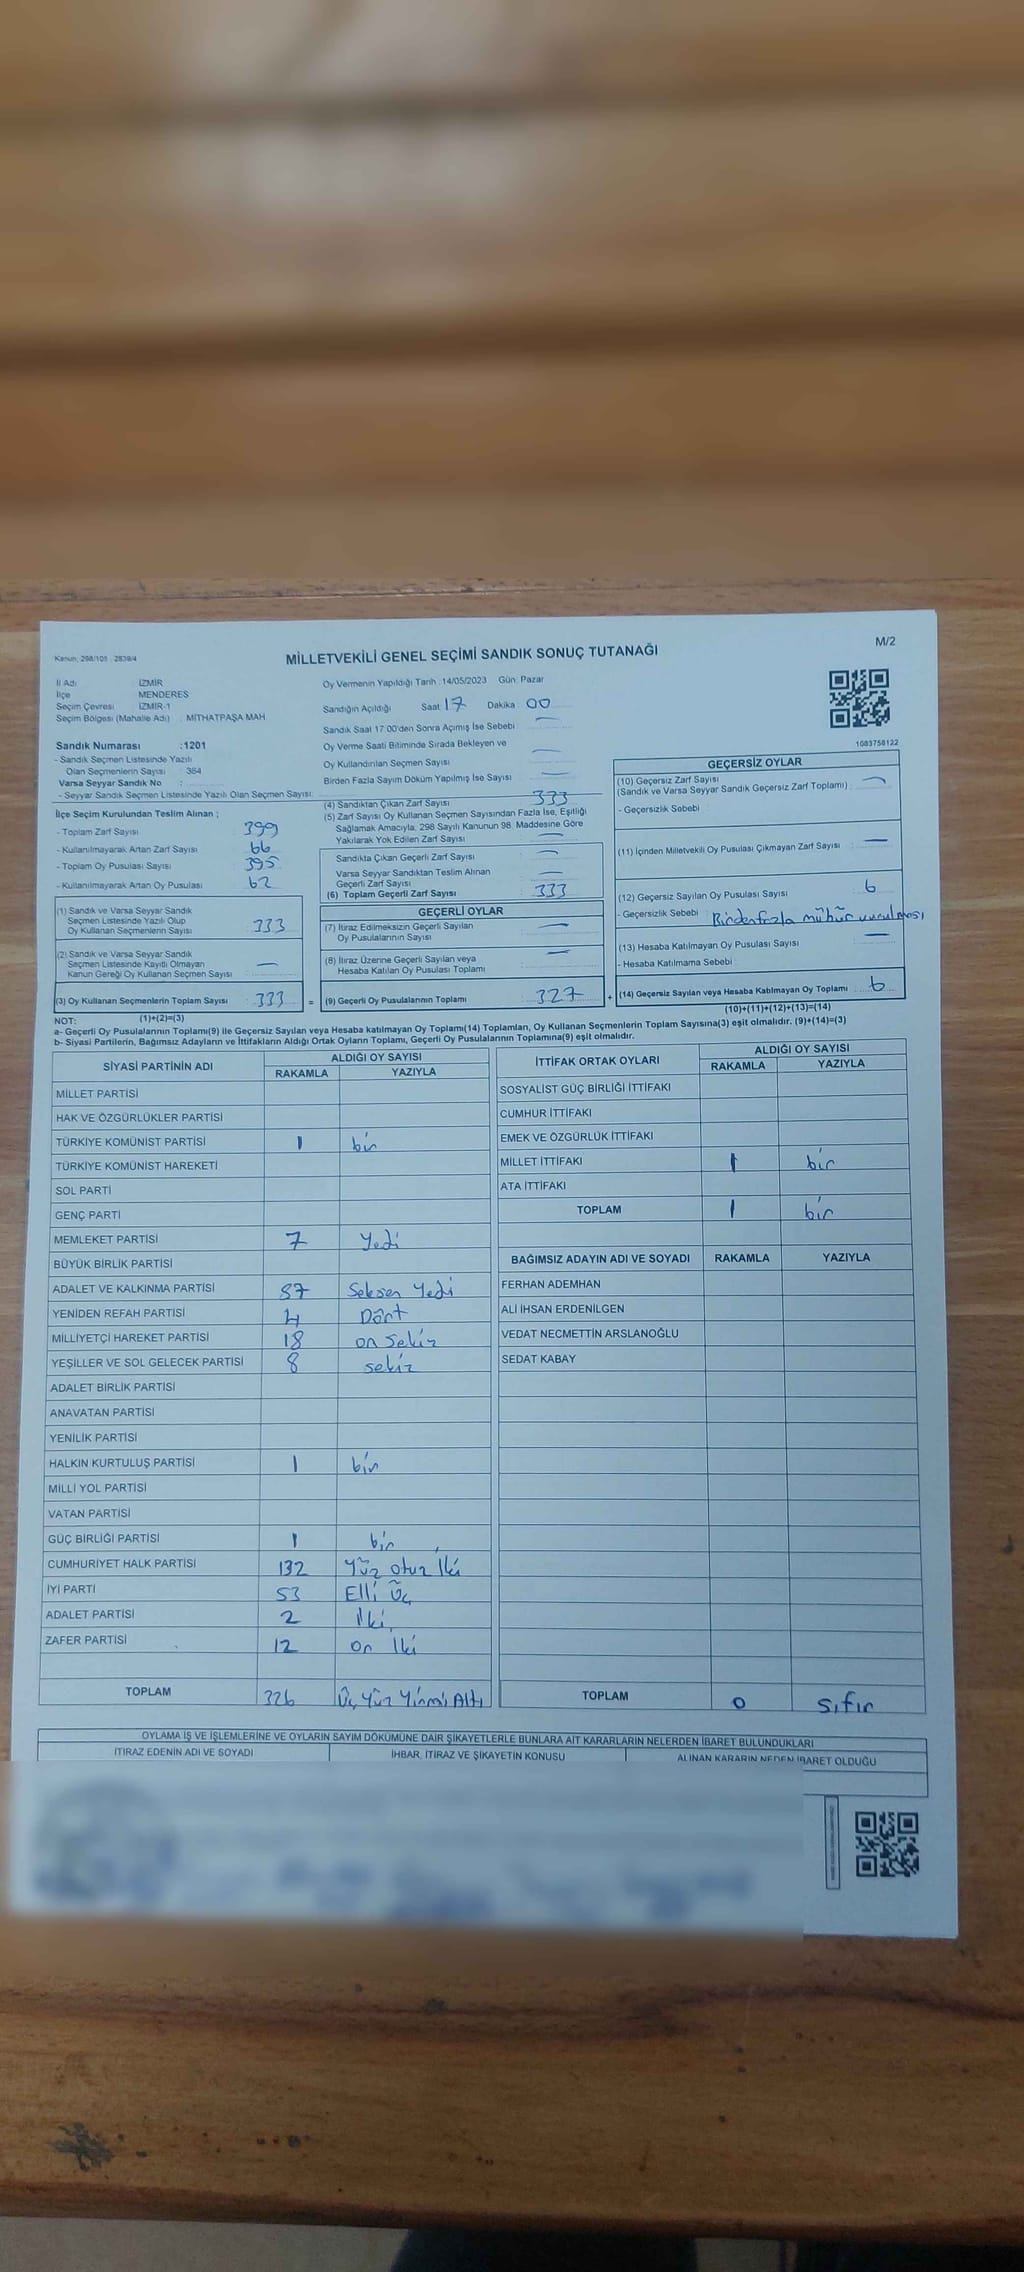 Kanun: 298/105 2839/4
M/2
MİLLETVEKİLİ GENEL SEÇİMİ SANDIK SONUÇ TUTANAĞI
İl Adı : İZMİR
İlçe : MENDERES
Seçim Çevresi : İZMİR-1
Seçim Bölgesi (Mahalle Adı) : MİTHATPAŞA MAH
Sandık Numarası :1201
- Sandık Seçmen Listesinde Yazılı
Olan Seçmenlerin Sayısı : 384
Varsa Seyyar Sandık No :
- Seyyar Sandık Seçmen Listesinde Yazılı Olan Seçmen Sayısı:
İlçe Seçim Kurulundan Teslim Alınan ;
- Toplam Zarf Sayısı : 399
- Kullanılmayarak Artan Zarf Sayısı : 66
- Toplam Oy Pusulası Sayısı : 395
- Kullanılmayarak Artan Oy Pusulası : 62
(1) Sandık ve Varsa Seyyar Sandık
Seçmen Listesinde Yazılı Olup
Oy Kullanan Seçmenlerin Sayısı : 333
(2) Sandık ve Varsa Seyyar Sandık
Seçmen Listesinde Kayıtlı Olmayan
Kanun Gereği Oy Kullanan Seçmen Sayısı : —
(3) Oy Kullanan Seçmenlerin Toplam Sayısı : 333
(1)+(2)=(3)
Oy Vermenin Yapıldığı Tarih :14/05/2023 Gün: Pazar
Sandığın Açıldığı Saat 17 Dakika 00
Sandık Saat 17:00'den Sonra Açımış İse Sebebi : —
Oy Verme Saati Bitiminde Sırada Bekleyen ve
Oy Kullandırılan Seçmen Sayısı : —
Birden Fazla Sayım Döküm Yapılmış İse Sayısı : —
(4) Sandıktan Çıkan Zarf Sayısı : 333
(5) Zarf Sayısı Oy Kullanan Seçmen Sayısından Fazla İse, Eşitliği
Sağlamak Amacıyla, 298 Sayılı Kanunun 98. Maddesine Göre
Yakılarak Yok Edilen Zarf Sayısı : —
Sandıkta Çıkan Geçerli Zarf Sayısı : —
Varsa Seyyar Sandıktan Teslim Alınan
Geçerli Zarf Sayısı : —
(6) Toplam Geçerli Zarf Sayısı : 333
GEÇERLİ OYLAR
(7) İtiraz Edilmeksizin Geçerli Sayılan
Oy Pusulalarının Sayısı : —
(8) İtiraz Üzerine Geçerli Sayılan veya
Hesaba Katılan Oy Pusulası Toplamı : —
= (9) Geçerli Oy Pusulalarının Toplamı : 327
1083758122
GEÇERSİZ OYLAR
(10) Geçersiz Zarf Sayısı
(Sandık ve Varsa Seyyar Sandık Geçersiz Zarf Toplamı) : —
- Geçersizlik Sebebi :
(11) İçinden Milletvekili Oy Pusulası Çıkmayan Zarf Sayısı : —
(12) Geçersiz Sayılan Oy Pusulası Sayısı : 6
- Geçersizlik Sebebi : Birden fazla mühür vurulması
(13) Hesaba Katılmayan Oy Pusulası Sayısı : —
- Hesaba Katılmama Sebebi :
+ (14) Geçersiz Sayılan veya Hesaba Katılmayan Oy Toplamı : 6
(10)+(11)+(12)+(13)=(14)
NOT:
a- Geçerli Oy Pusulalarının Toplamı(9) ile Geçersiz Sayılan veya Hesaba katılmayan Oy Toplamı(14) Toplamları, Oy Kullanan Seçmenlerin Toplam Sayısına(3) eşit olmalıdır. (9)+(14)=(3)
b- Siyasi Partilerin, Bağımsız Adayların ve İttifakların Aldığı Ortak Oyların Toplamı, Geçerli Oy Pusulalarının Toplamına(9) eşit olmalıdır.
SİYASİ PARTİNİN ADI ALDIĞI OY SAYISI
RAKAMLA YAZIYLA
MİLLET PARTİSİ
HAK VE ÖZGÜRLÜKLER PARTİSİ
TÜRKİYE KOMÜNİST PARTİSİ 1 bir
TÜRKİYE KOMÜNİST HAREKETİ
SOL PARTİ
GENÇ PARTİ
MEMLEKET PARTİSİ 7 Yedi
BÜYÜK BİRLİK PARTİSİ
ADALET VE KALKINMA PARTİSİ 87 Seksen Yedi
YENİDEN REFAH PARTİSİ 4 Dört
MİLLİYETÇİ HAREKET PARTİSİ 18 on sekiz
YEŞİLLER VE SOL GELECEK PARTİSİ 8 sekiz
ADALET BİRLİK PARTİSİ
ANAVATAN PARTİSİ
YENİLİK PARTİSİ
HALKIN KURTULUŞ PARTİSİ 1 bir
MİLLİ YOL PARTİSİ
VATAN PARTİSİ
GÜÇ BİRLİĞİ PARTİSİ 1 bir
CUMHURİYET HALK PARTİSİ 132 Yüz otuz İki
İYİ PARTİ 53 Elli Üç
ADALET PARTİSİ 2 İki
ZAFER PARTİSİ 12 on İki
TOPLAM 326 Üç Yüz Yirmi Altı
İTTİFAK ORTAK OYLARI ALDIĞI OY SAYISI
RAKAMLA YAZIYLA
SOSYALİST GÜÇ BİRLİĞİ İTTİFAKI
CUMHUR İTTİFAKI
EMEK VE ÖZGÜRLÜK İTTİFAKI
MİLLET İTTİFAKI 1 bir
ATA İTTİFAKI
TOPLAM 1 bir
BAĞIMSIZ ADAYIN ADI VE SOYADI RAKAMLA YAZIYLA
FERHAN ADEMHAN
ALİ İHSAN ERDENİLGEN
VEDAT NECMETTİN ARSLANOĞLU
SEDAT KABAY
TOPLAM 0 sıfır
OYLAMA İŞ VE İŞLEMLERİNE VE OYLARIN SAYIM DÖKÜMÜNE DAİR ŞİKAYETLERLE BUNLARA AİT KARARLARIN NELERDEN İBARET BULUNDUKLARI
İTİRAZ EDENİN ADI VE SOYADI İHBAR, İTİRAZ VE ŞİKAYETİN KONUSU ALINAN KARARIN NEDEN İBARET OLDUĞU